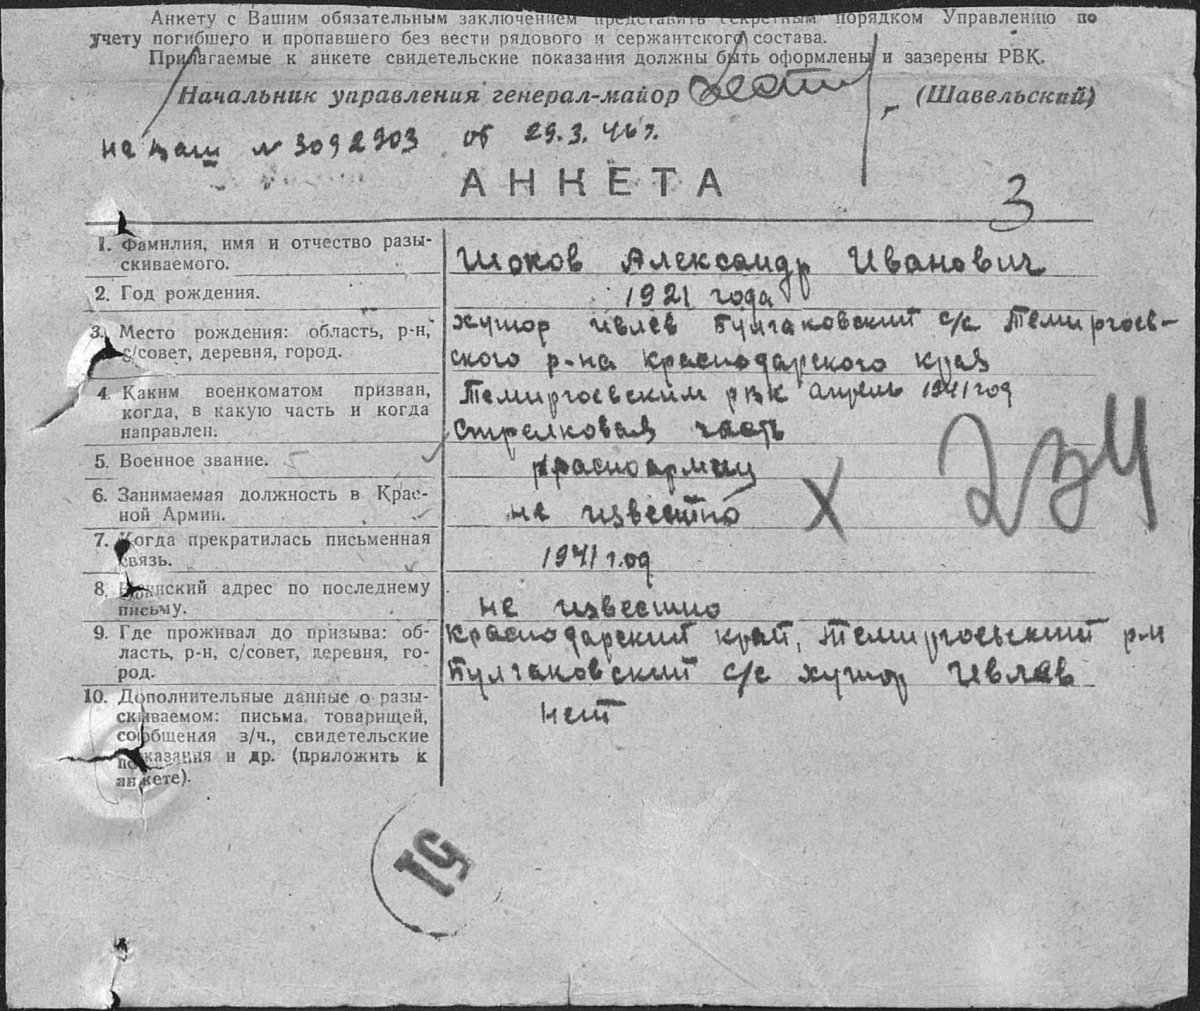 Анкету с Вашим обязательным заключением представить секретным порядком Управлению по
учету погибшего и пропавшего без вести рядового и сержантского состава.
Прилагаемые к анкете свидетельские показания должны быть оформлены и зазерены РВК.
Начальник управления генерал-майор (Шавельский)
на ваш № 3092903 от 29.3.46 г.
АНКЕТА
3
1. Фамилия, имя и отчество разы-
скиваемого.
Шоков Александр Иванович
2. Год рождения.
1921 года
3. Место рождения: область, р-н,
с/совет, деревня, город.
хутор Ивлев Булгаковский с/с Темиргоев-
ского р-на Краснодарского края
4. Каким военкоматом призван,
когда, в какую часть и когда
направлен.
Темиргоевским рвк апрель 1941 год
Стрелковая часть
5. Военное звание.
красноармеец
6. Занимаемая должность в Крас-
ной Армии.
не известно
7. Когда прекратилась письменная
связь.
1941 год
8. Воинский адрес по последнему
письму.
не известно
9. Где проживал до призыва: об-
ласть, р-н, с/совет, деревня, го-
род.
Краснодарский край, Темиргоевский р-н
Булгаковский с/с хутор Ивлев
10. Дополнительные данные о разы-
скиваемом: письма товарищей,
сообщения з/ч., свидетельские
показания и др. (приложить к
анкете).
нет
51